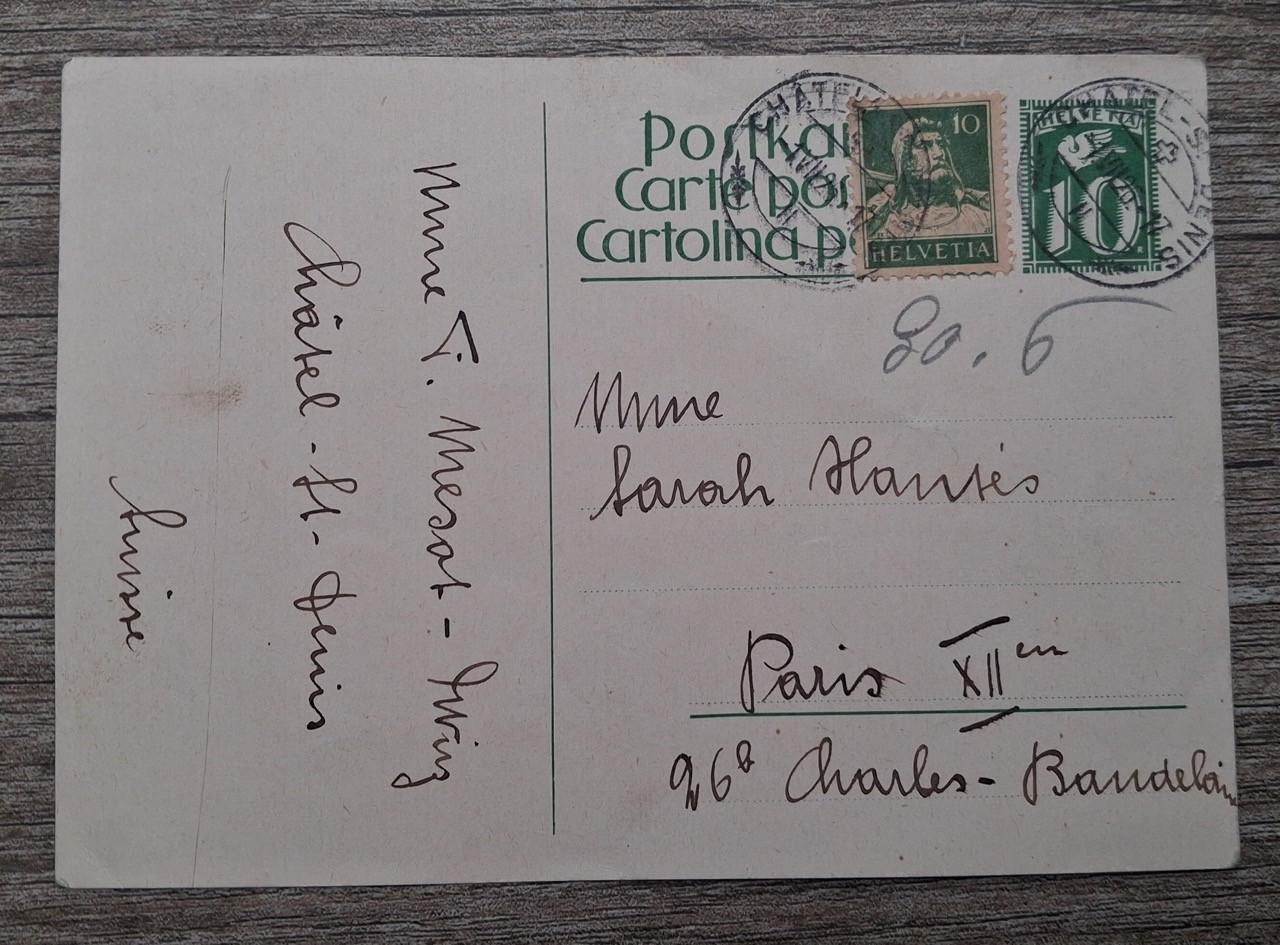 Postkar
Carte pos
Cartolina po
CHÂTEL
10
HELVETIA
HELVETIA
10
CHÂTEL-ST-DENIS
20. 6
Mme
Sarah Hantès
Paris XII em
26 Charles-Baudelair
Mme T. Mesot-
Châtel-St-Denis
Suisse